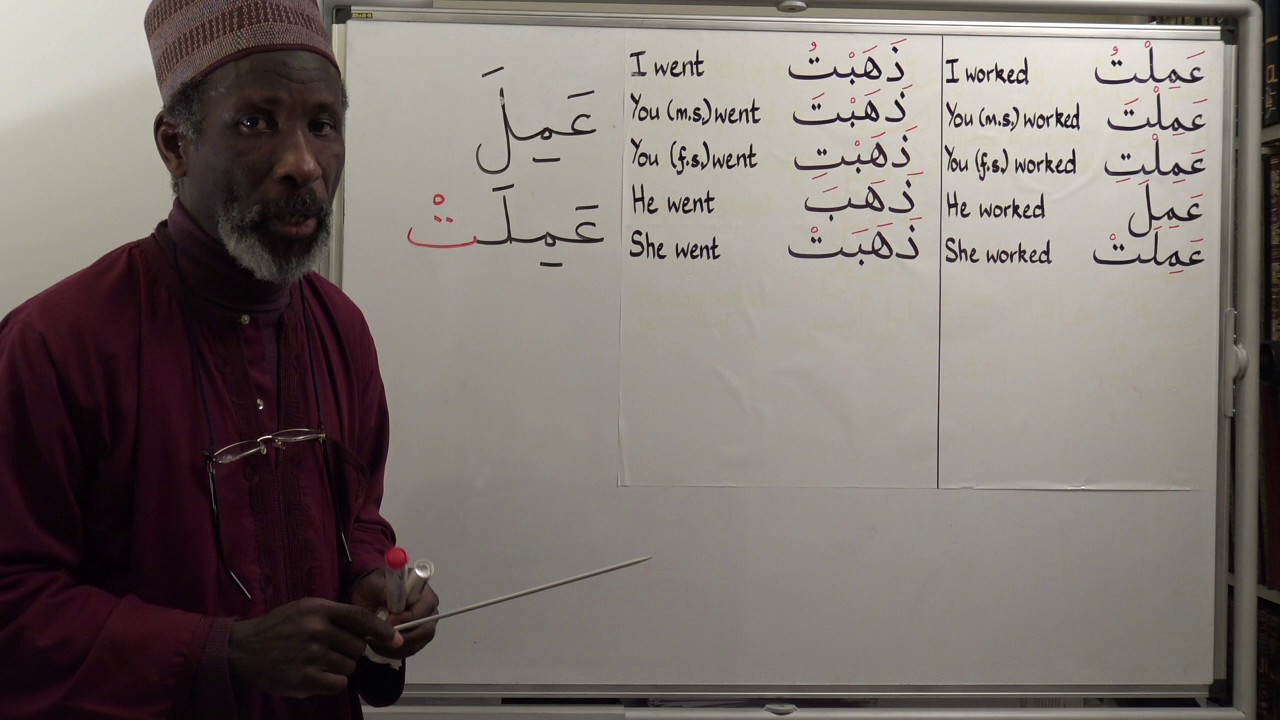 عَمِلَ
عَمِلَتْ
I went ذَهَبْتُ
You (m.s.) went ذَهَبْتَ
You (f.s.) went ذَهَبْتِ
He went ذَهَبَ
She went ذَهَبَتْ
I worked عَمِلْتُ
You (m.s.) worked عَمِلْتَ
You (f.s.) worked عَمِلْتِ
He worked عَمِلَ
She worked عَمِلَتْ